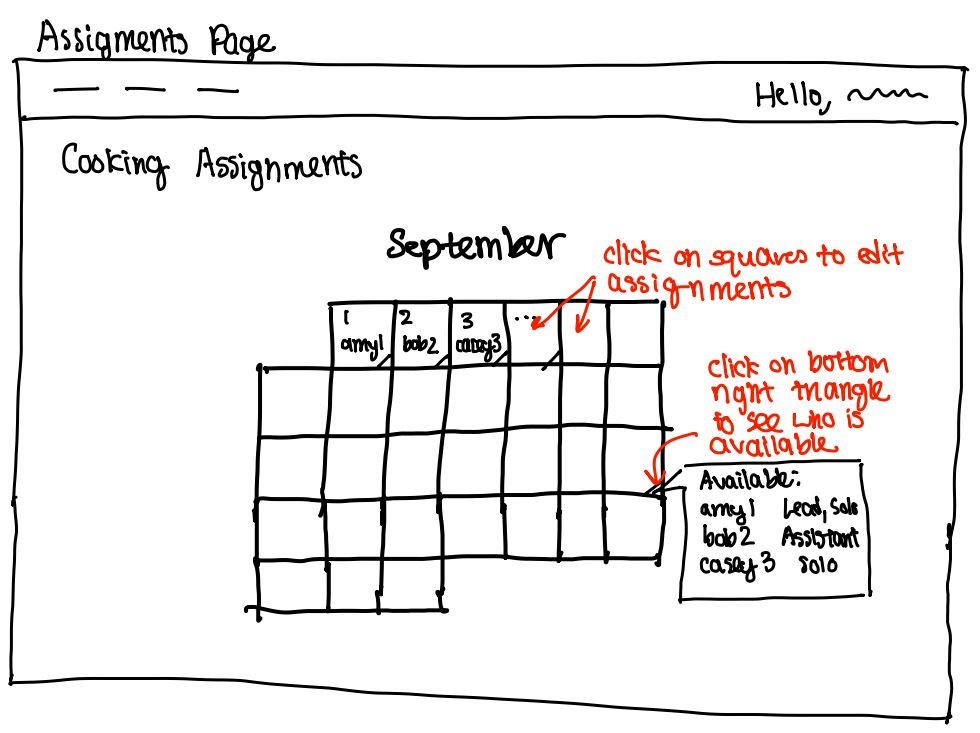 Assigments Page
Hello,
Cooking Assignments
September
click on squares to edit
assignments
1 2 3 ...
amy1 bob2 casey3
click on bottom
right triangle
to see who is
available
Available:
amy1 Lead, Solo
bob2 Assistant
casey3 Solo